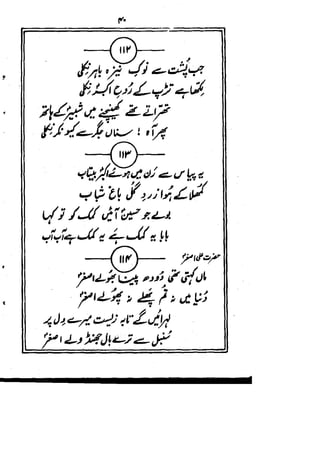 ۴۰
۱۱۲
جب پشت سے نوکِ نیزہ باہر نکلی
لکھا ہے تڑپ کے رُوحِ اکبرؑ نکلی
تھرّاتے تھے کھینچنے میں شبیرؑ کے ہاتھ
پھر آہ! سناں جگر سے کیونکر نکلی
۱۱۳
یہ پیاس سے رَن میں ہوئے اکبرؑ بیتاب
کملا کے ہوا زرد گلِ باغِ شباب
بولے جو حسینؑ آئیں کمک کو تو کہا
بابا یہ کمک ہے یہ کمک ہے آب آب
حضرت علی اصغرؑ
۱۱۴
ماں کہتی تھی دُودھ پینا بھولے اصغرؑ
دُنیا میں نہ تم پھلے نہ پھولے اصغرؑ
لہرائیں گے تابہ زیست میرے دل پر
سُنبل سے ترے بال جھنڈولے اصغرؑ